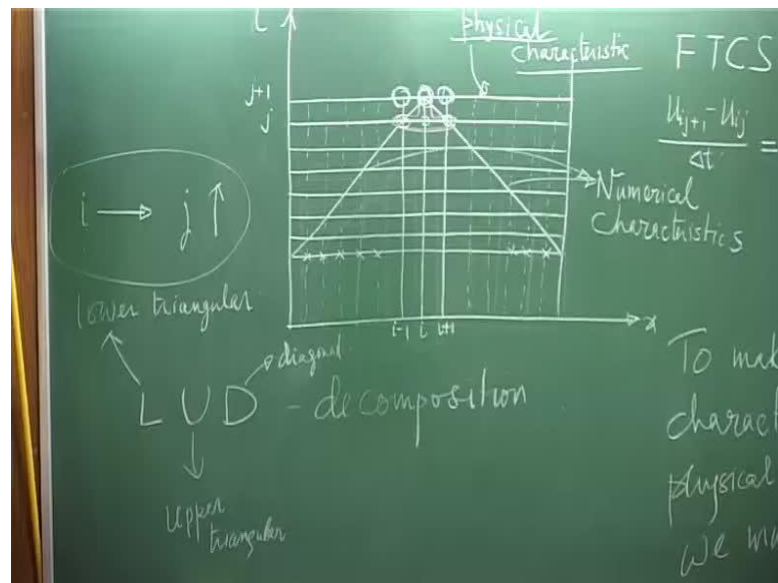 physical
characteristic
FTCS
j+1
j
u_{ij+1} - u_{ij}
Δt
=
i → j ↑
Numerical
characteristics
lower triangular
i-1 i i+1
x
diagonal
L U D - decomposition
Upper
triangular
To mak
charact
physical
we